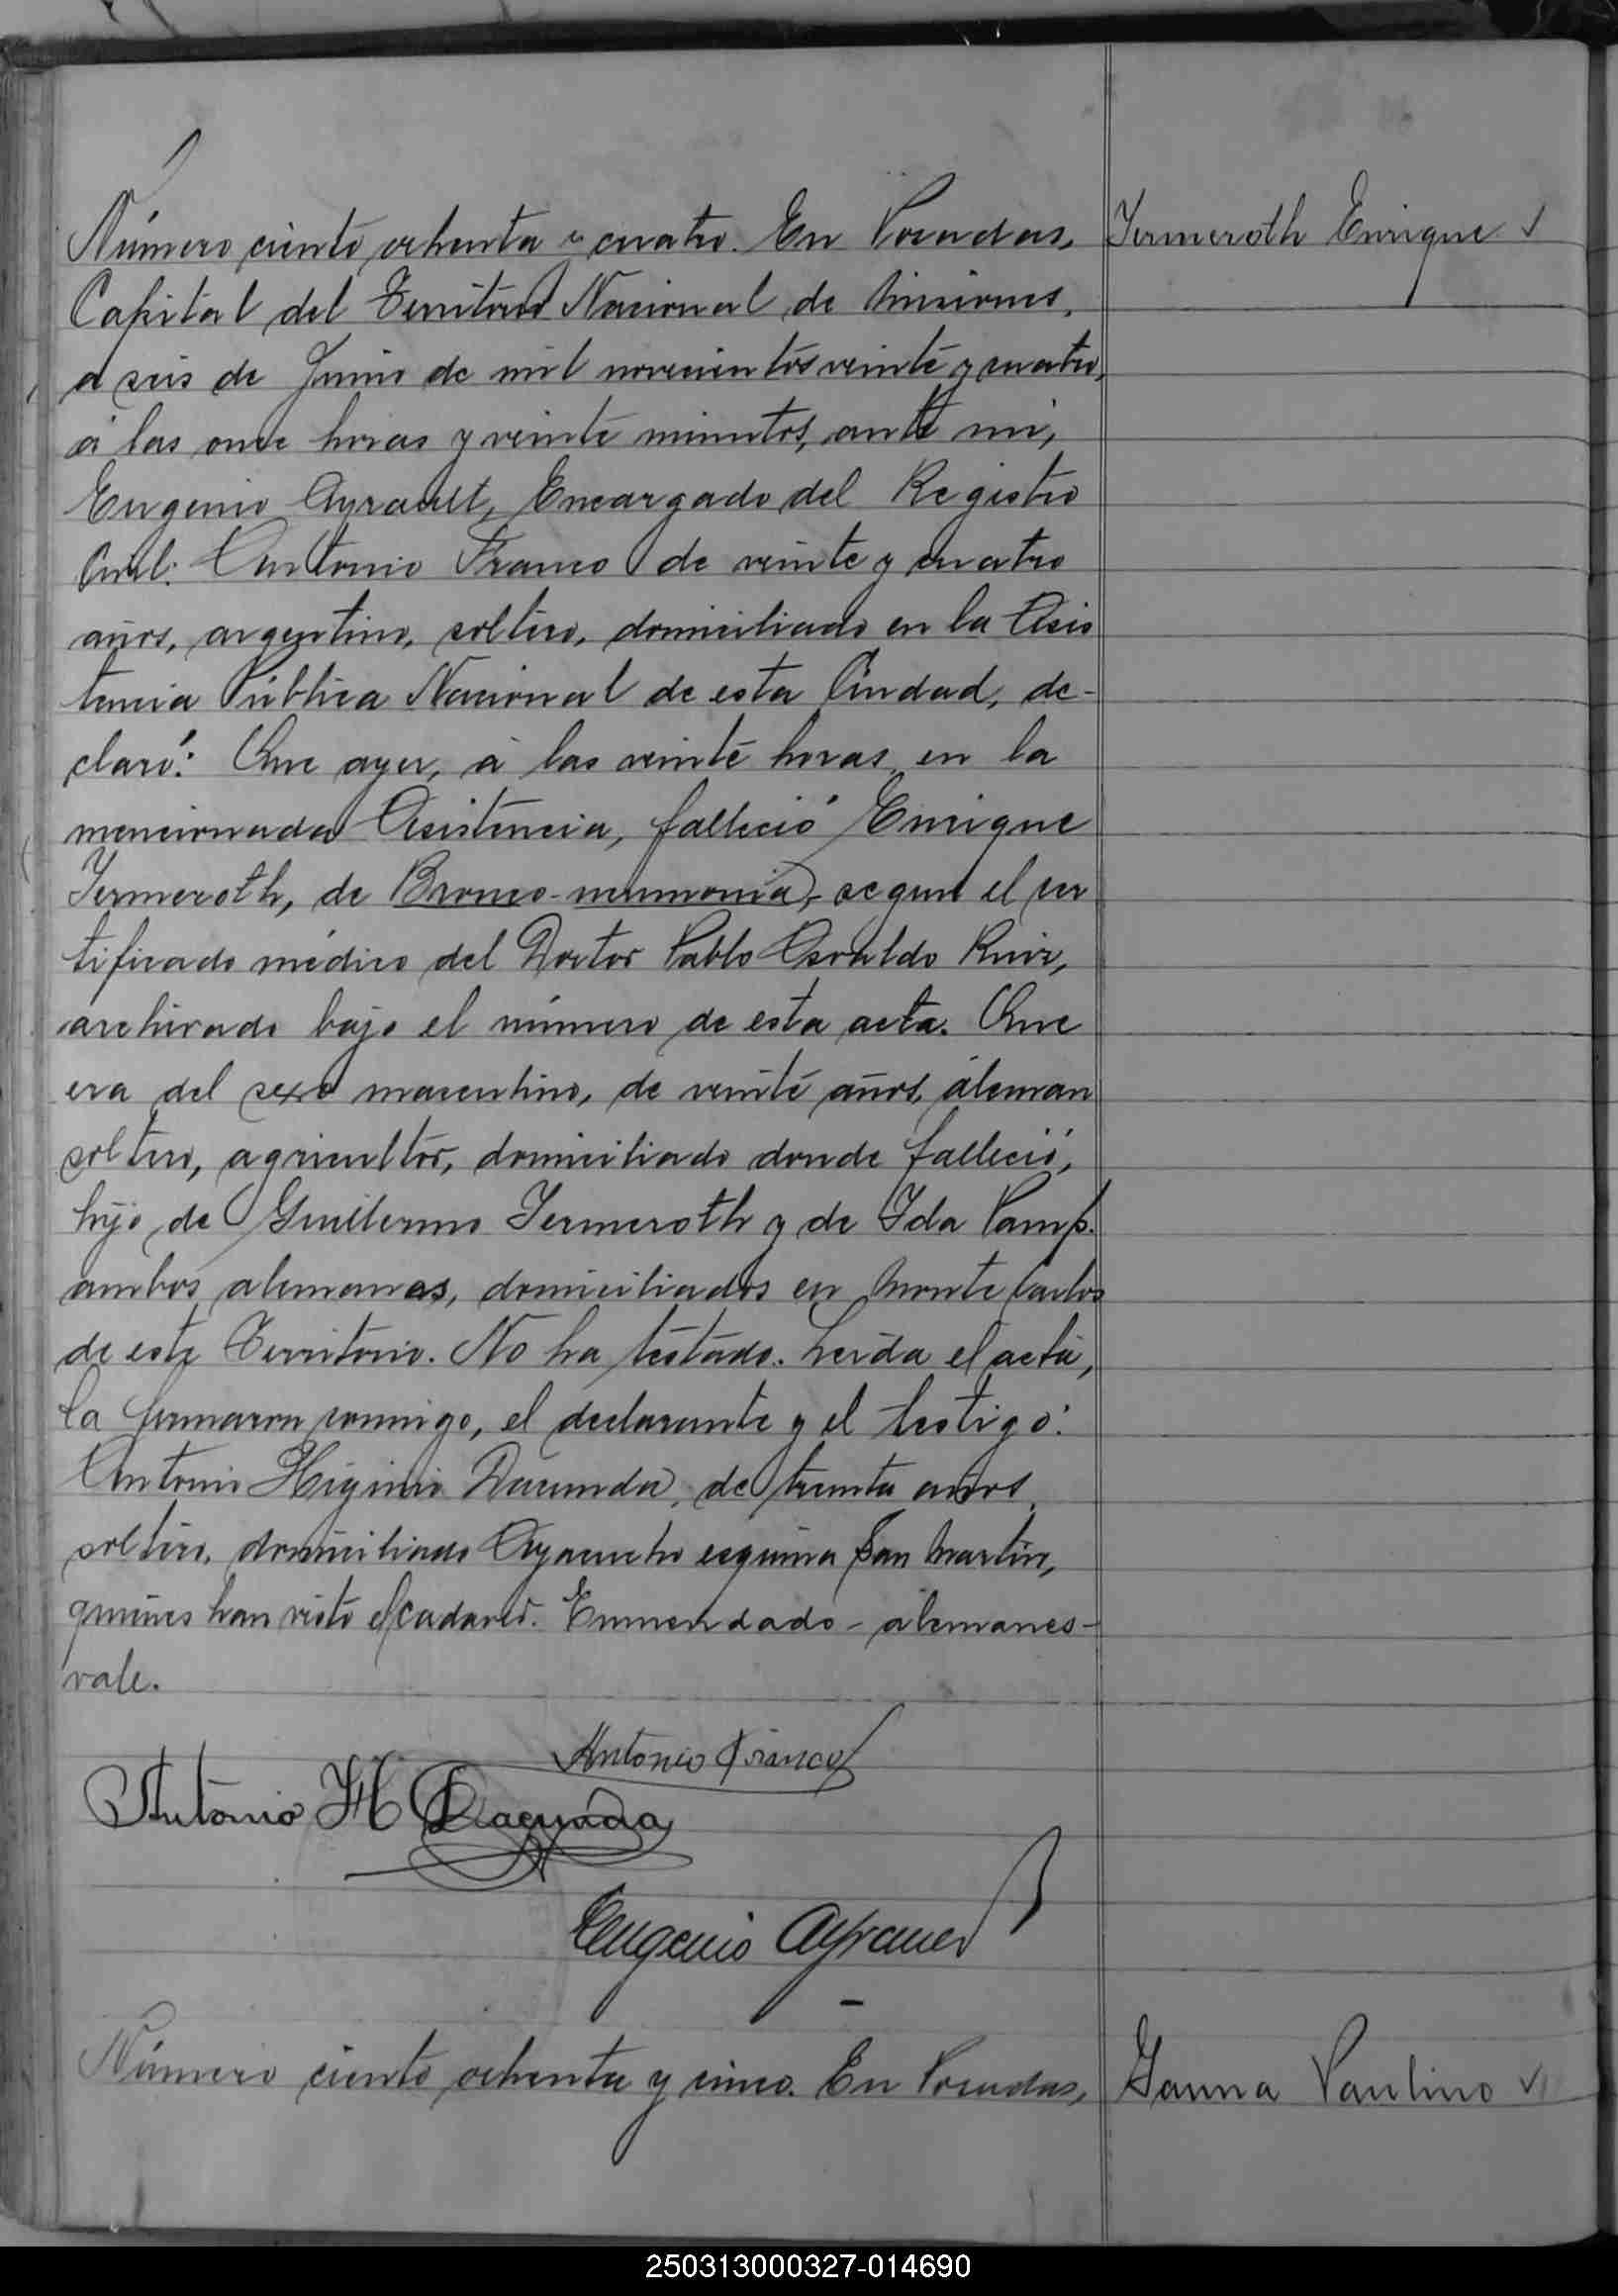 Número ciento ochenta y cuatro. En Posadas,
Yermeroth Enrique
Capital del Territorio Nacional de Misiones,
a seis de Junio de mil novecientos veinte y cuatro,
á las once horas y veinte minutos, ante mi,
Eugenio Ayrault, Encargado del Registro
Civil: Antonio Franco de veinte y cuatro
años, argentino, soltero, domiciliado en la Asis
tencia Pública Nacional de esta Ciudad, de-
claró: Que ayer, á las veinte horas en la
mencionada Asistencia, falleció Enrique
Yermeroth, de Bronco-neumonia, segun el cer
tificado médico del Doctor Pablo Osvaldo Ruiz,
archivado bajo el número de esta acta. Que
era del sexo masculino, de veinte años, aleman
soltero, agricultor, domiciliado donde falleció,
hijo de Guillermo Yermeroth y de Ida Pamp.
ambos alemanes, domiciliados en Monte Carlos
de este Territorio. No ha testado. Leida el acta,
la firmaron conmigo, el declarante y el testigo:
Antonio Higinio Dacunda, de treinta años
soltero, domiciliado Ayacucho esquina San Martin,
quienes han visto el cadaver. Enmendado - alemanes -
vale.
Antonio Franco
Antonio H Dacunda
Eugenio Ayrault
Número ciento ochenta y cinco. En Posadas,
Paulino
250313000327-014690